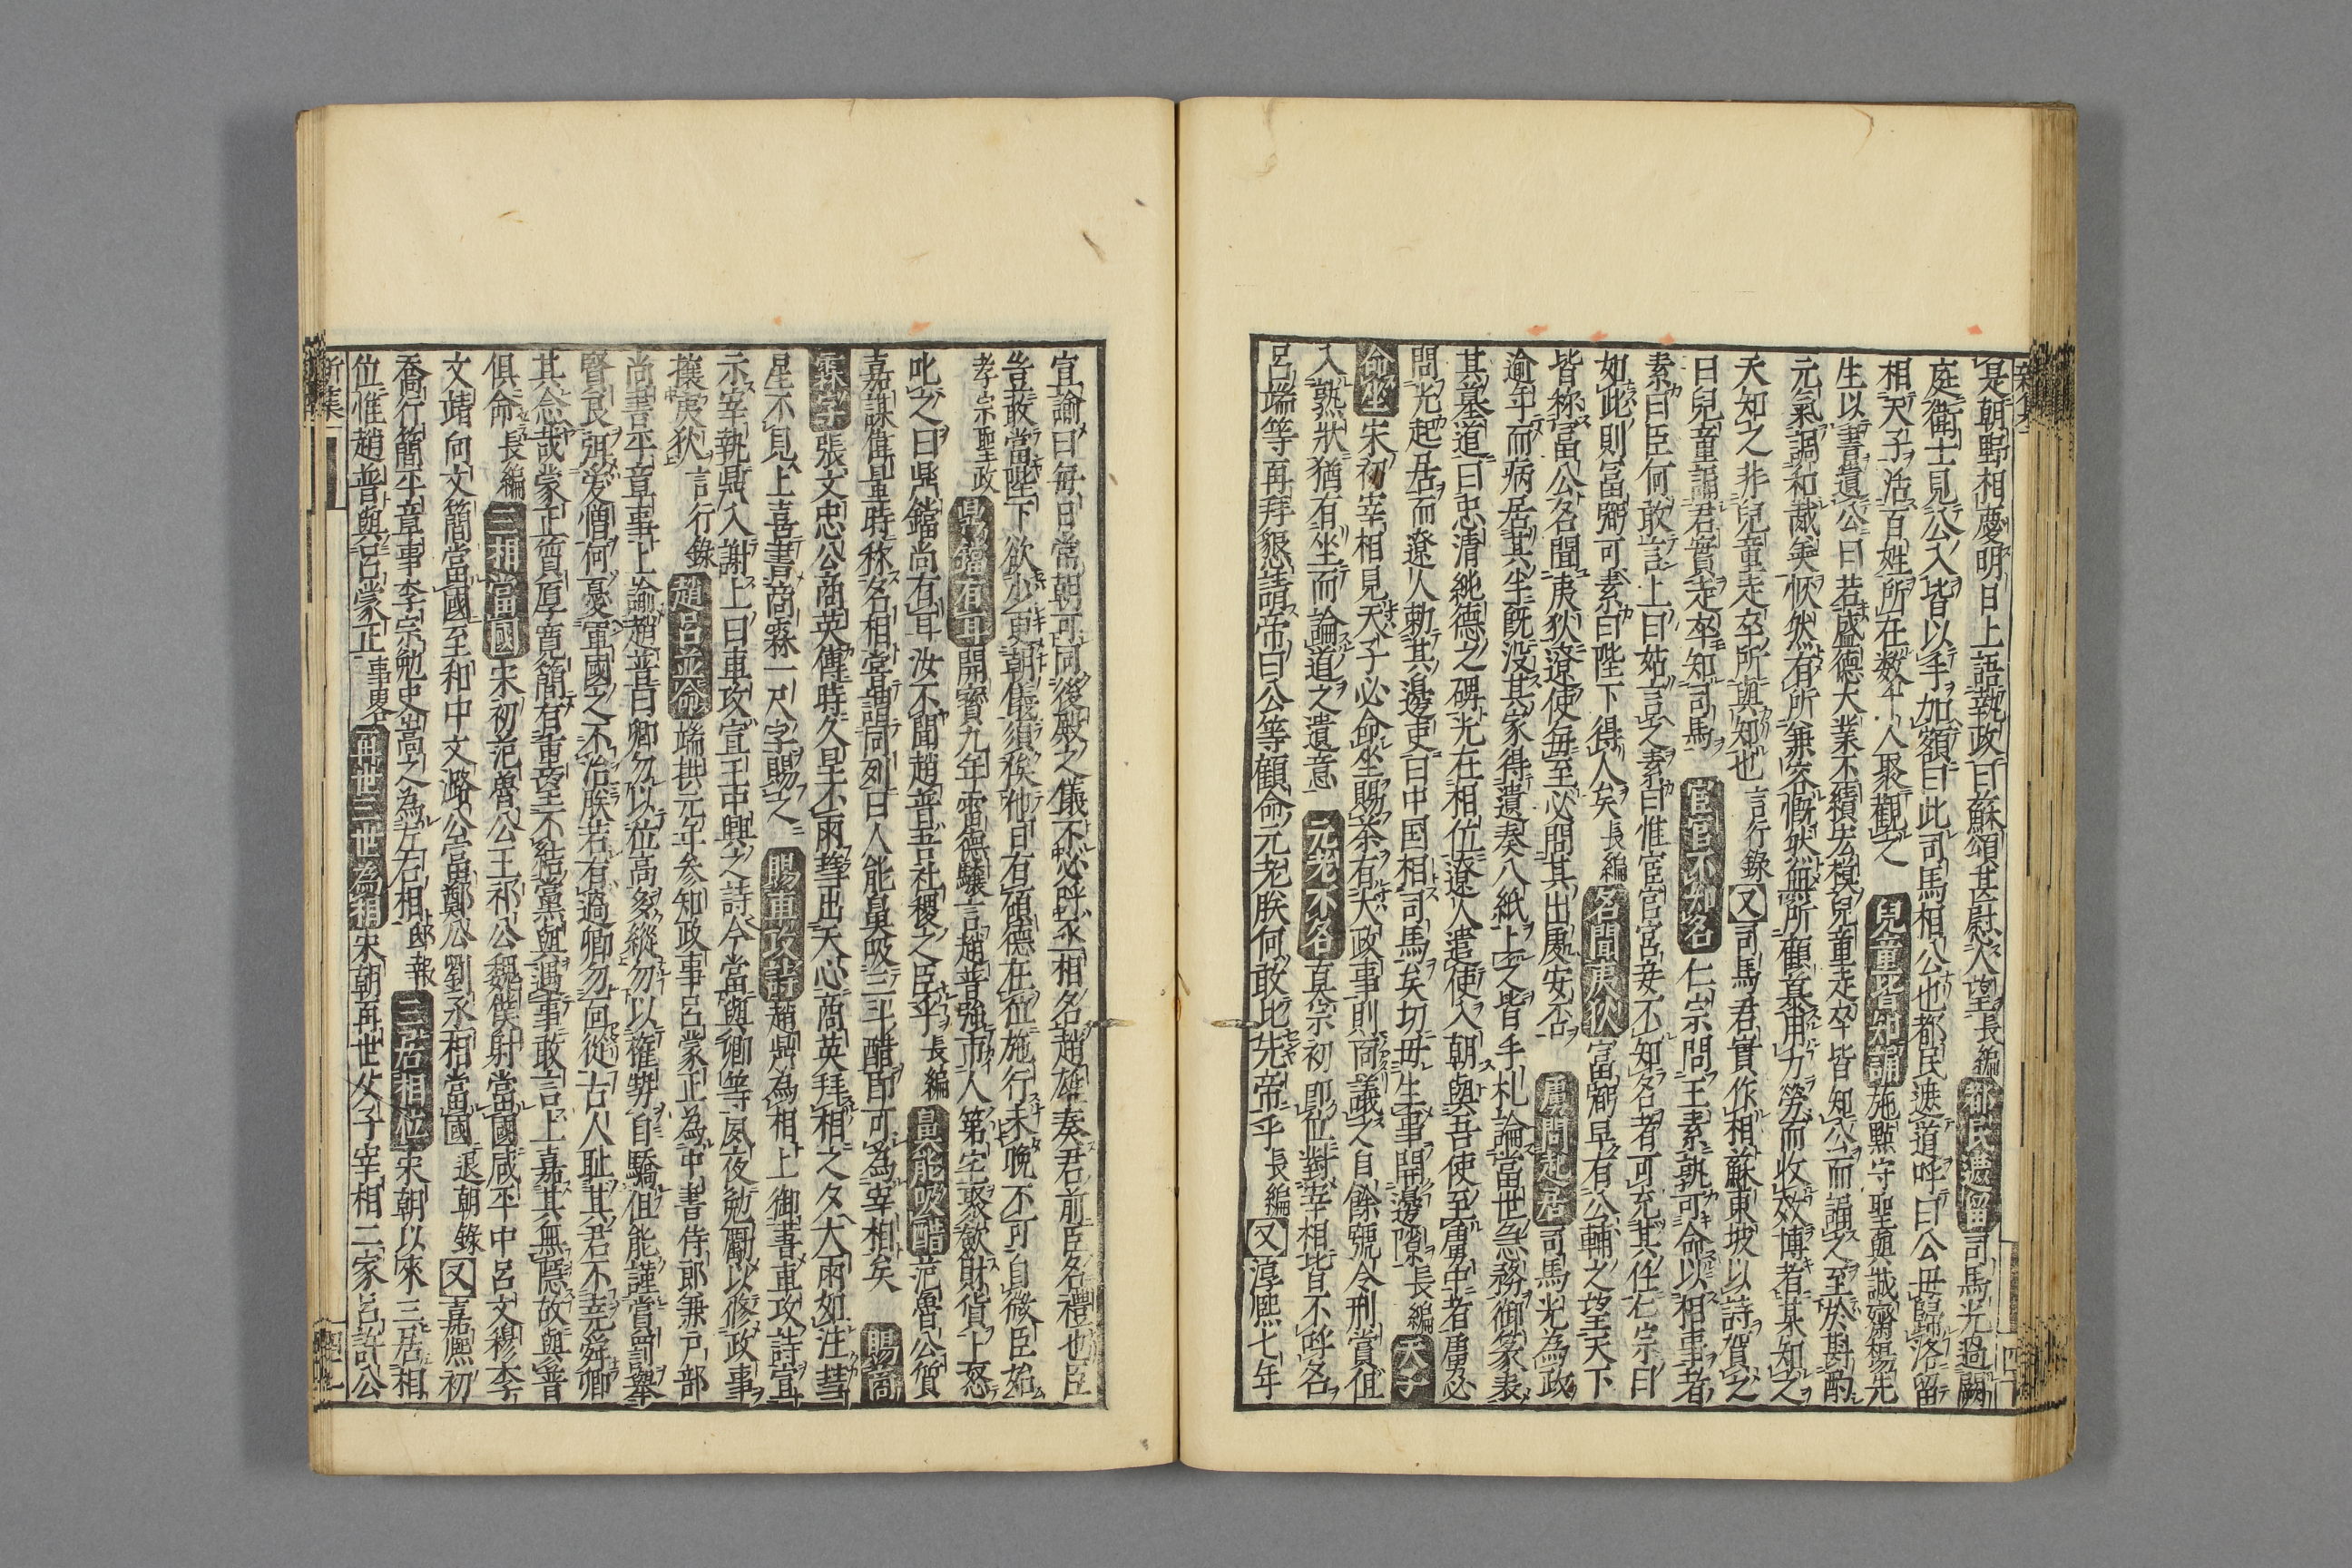 是朝野相慶明日上語執政曰蘇頌甚慰人望長編都民遮留司馬光過闕
庭衛士見公入皆以手加額曰此司馬相公也都民遮道呼曰公毋歸洛留
相天子活百姓所在数千人聚觀之兒童皆知誦施黙守聖與誠齋楊先
生以書遺公曰若盛德大業不績宏模兒童走卒皆知公而誦之至於斟酌
元氣調和裁矣恢然有所兼容慨然無所顧慕用力勞而收效博者某知之
天知之非兒童走卒所與知也言行錄又司馬君實作相蘇東坡以詩賀之
曰兒童誦君實走卒知司馬宦官不知名仁宗問王素孰可命以相事者
素曰臣何敢言上曰姑言之素曰惟宦官宮妾不知名者可充其任仁宗曰
如此則富弼可素曰陛下得人矣長編名聞夷狄富弼早有公輔之望天下
皆称富公名聞夷狄遼使每至必問其出處安否虜問起居司馬光為政
逾年而病居其半既没其家得遺奏八紙上之皆手札論當世急務御篆表
其墓道曰忠清純德之碑光在相位遼人遣使入朝與吾使至虜中者虜必
問光起居而遼人勑其邊吏曰中国相司馬矣切毋生事開邊隙長編天子
命坐宋初宰相見天子必命坐賜茶有大政事則面議之自餘號令刑賞但
入熟狀猶有坐而論道之遺意元老不名真宗初即位對宰相皆不呼名
呂端等再拜懇請帝曰公等顧命元老朕何敢比先帝乎長編又淳熙七年
宣諭曰每日常朝可同後殿之儀不必呼丞相名趙雄奏君前臣名禮也臣
豈敢當陛下欲少更朝儀須俟他日有碩德在位施行未晩不可自微臣始
孝宗聖政鼎鐺有耳開寳九年雷德驤言趙普強市人第宅聚歛財貨上怒
叱之曰鼎鐺尚有耳汝不聞趙普吾社稷之臣乎長編鼻能吸醋范魯公質
嘉謀隹量時称名相嘗語同列曰人能鼻吸三斗醋即可為宰相矣賜商
霖字張文忠公商英傳時久旱不雨彗出天心商英拜相之夕大雨如注彗
星不見上喜書商霖一尺字賜之賜車攻詩趙鼎為相上御書車攻詩宣
示宰執鼎入謝上曰車攻宣王中興之詩今當與卿等夙夜勉勵以修政事
攘夷狄言行錄趙呂並命端拱元年参知政事呂蒙正為中書侍郎兼戸部
尚書平章事上諭趙普曰卿勿以位高多縱勿以權勢自驕但能謹賞罰舉
賢良弭爱憎何憂軍國之不治朕若有過卿勿面從古人耻其君不尭舜卿
其念哉蒙正質厚寛簡有重望不結黨與遇事敢言上嘉其無隱故與普
俱命長編三相當國宋初范魯公王祁公魏僕射當國咸平中呂文穆李
文靖向文簡當國至和中文潞公富鄭公劉丞相當國退朝錄又嘉熙初
喬行簡平章事李宗勉史嵩之為左右相邸報三居相位宋朝以來三居相
位惟趙普與呂蒙正事畧再世三世為相宋朝再世父子宰相二家呂許公